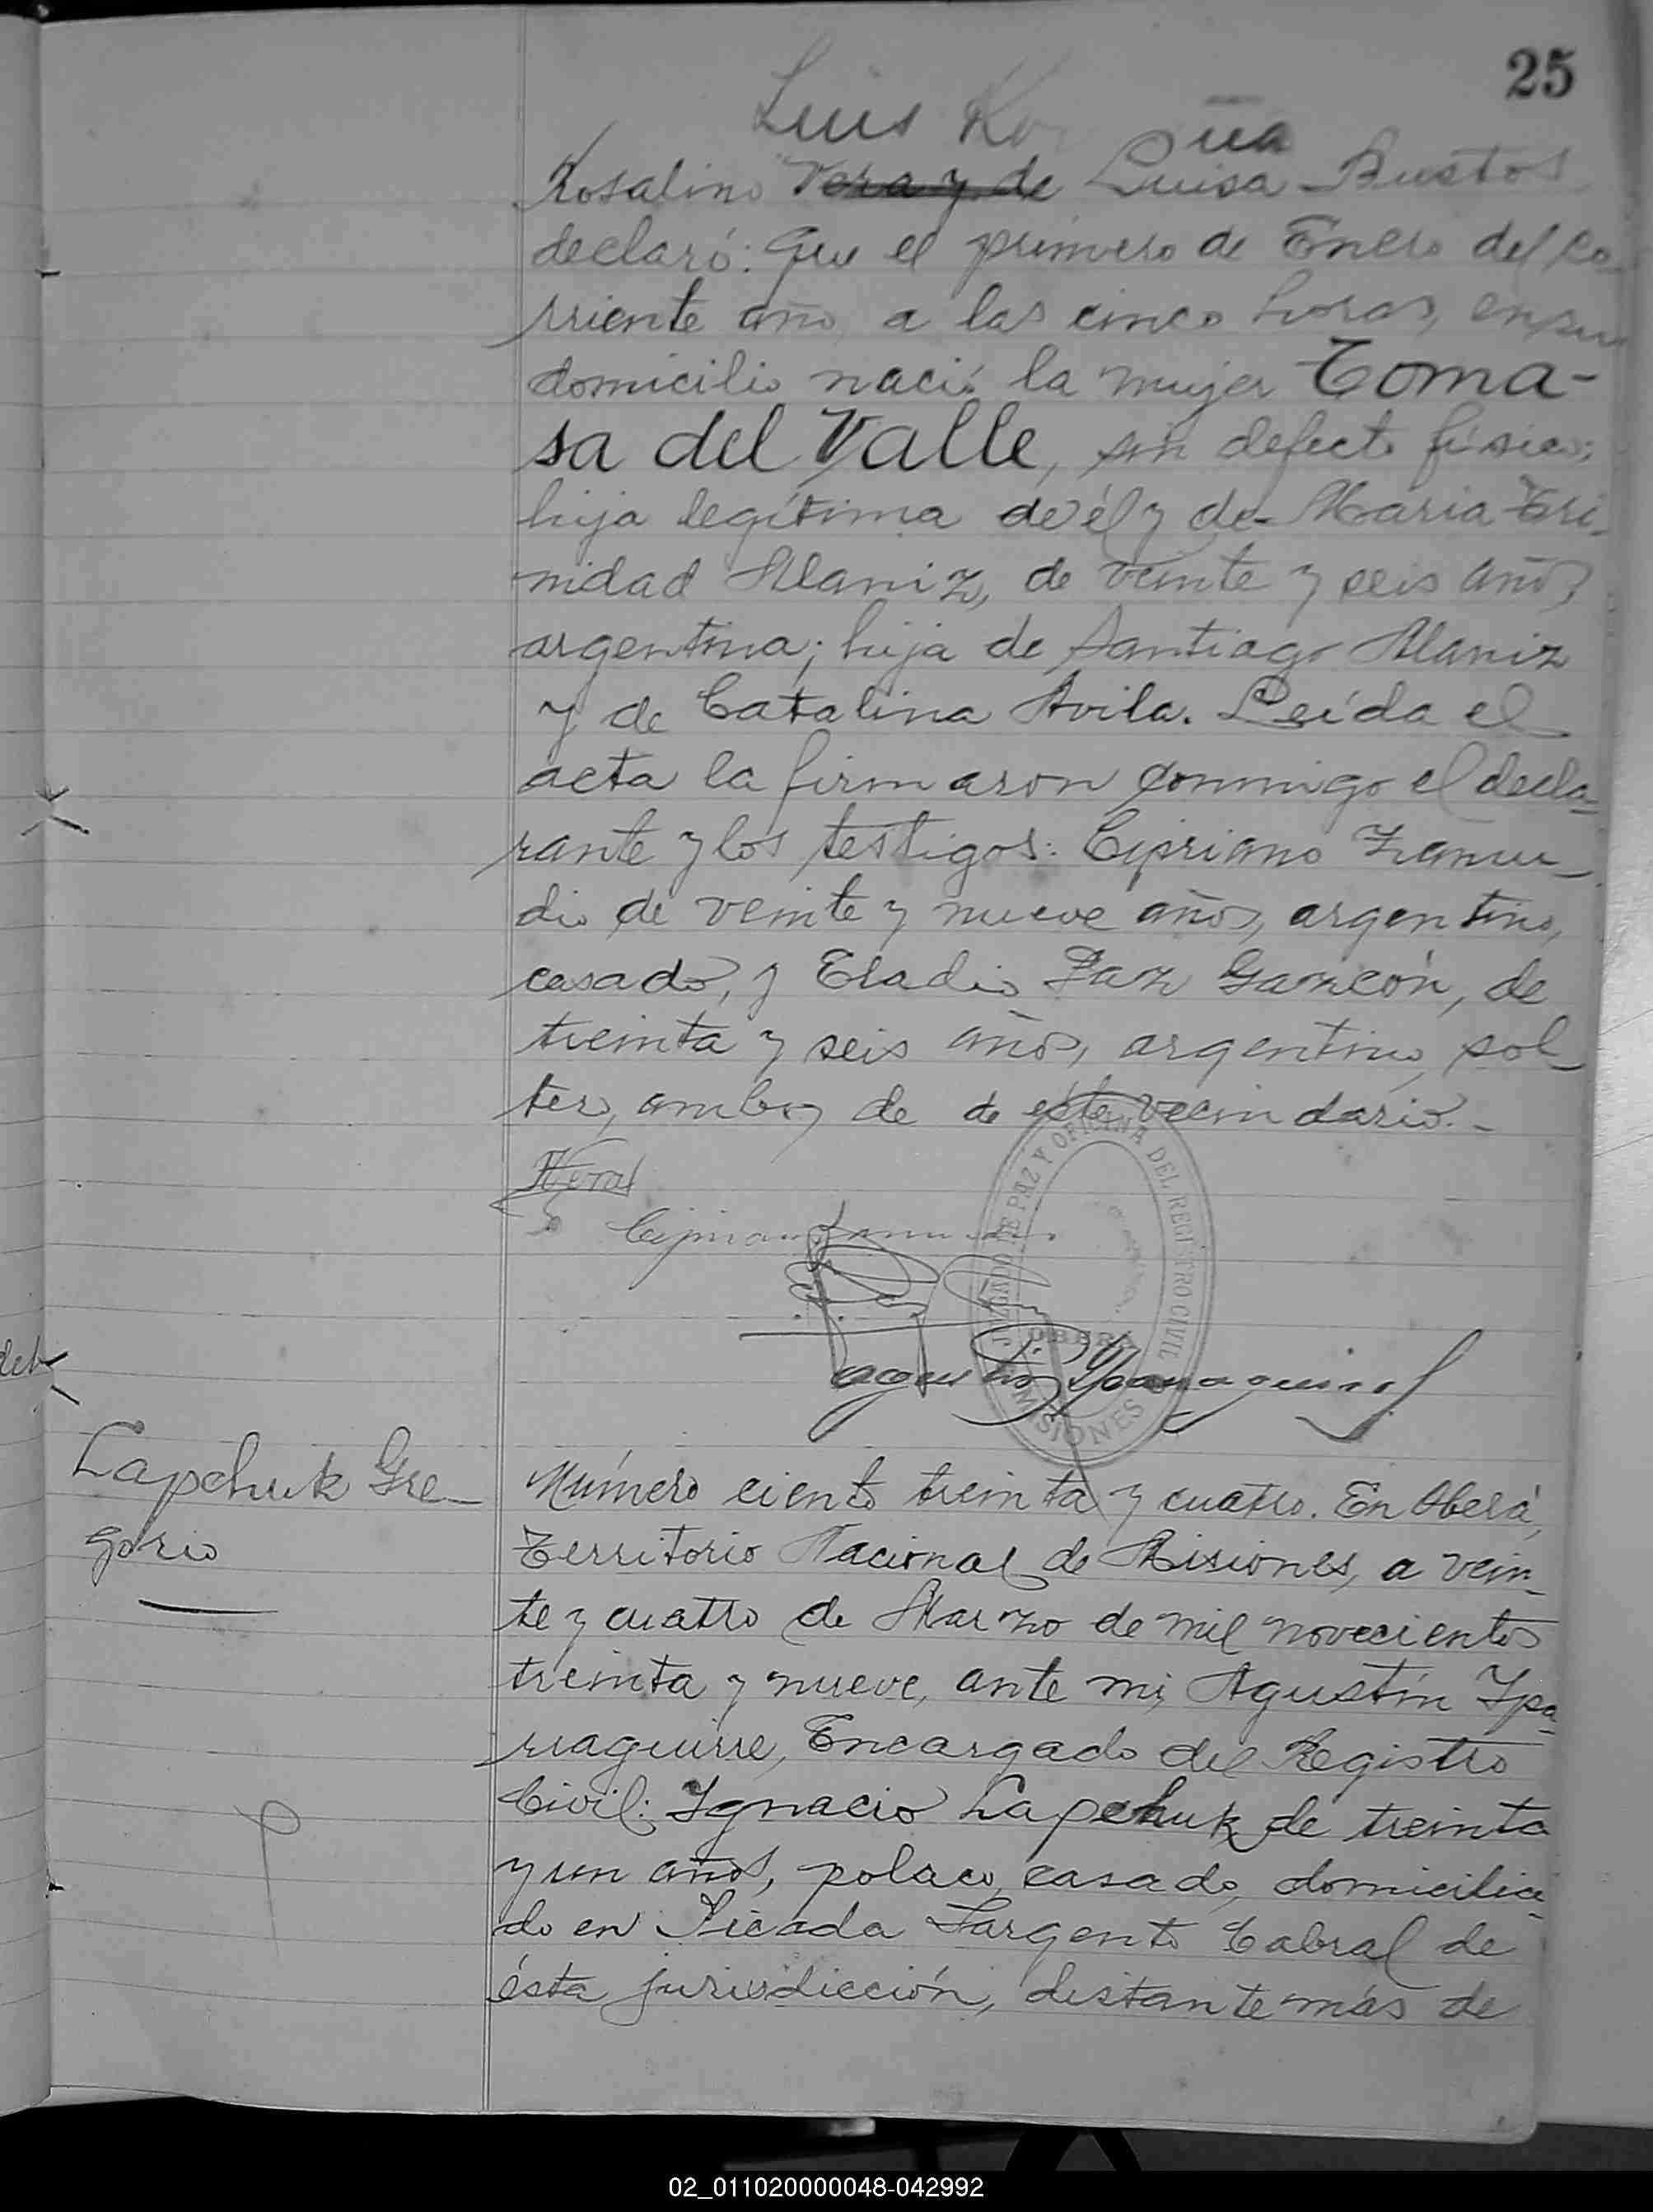 25
Luis
Rosalino Vera y de Luisa Bustos
declaró: Que el primero de Enero del co-
rriente año, a las cinco horas, en su
domicilio nació la mujer Toma-
sa del Valle, sin defecto físico;
hija legítima de él y de María Tri-
nidad Alaniz, de veinte y seis años,
argentina; hija de Santiago Alaniz
y de Catalina Avila. Leída el
acta la firmaron conmigo el decla-
rante y los testigos: Cipriano Zamu-
dio de veinte y nueve años, argentino,
casado, y Eladio Paz Garzón, de
treinta y seis años, argentino, sol-
tero, ambos de de este vecindario.-
Cipriano Zamudio
JUZGADO DE PAZ Y OFICINA DEL REGISTRO CIVIL
OBERA
MISIONES
Agustín Yparraguirre
Lapchuk Gre-
gorio
Número ciento treinta y cuatro. En Oberá,
Territorio Nacional de Misiones, a vein-
te y cuatro de Marzo de mil novecientos
treinta y nueve, ante mi, Agustín Ypa-
rraguirre, Encargado del Registro
Civil: Ignacio Lapchuk de treinta
y un años, polaco, casado, domicilia-
do en Picada Sargento Cabral de
ésta jurisdicción, distante más de
02_011020000048-042992